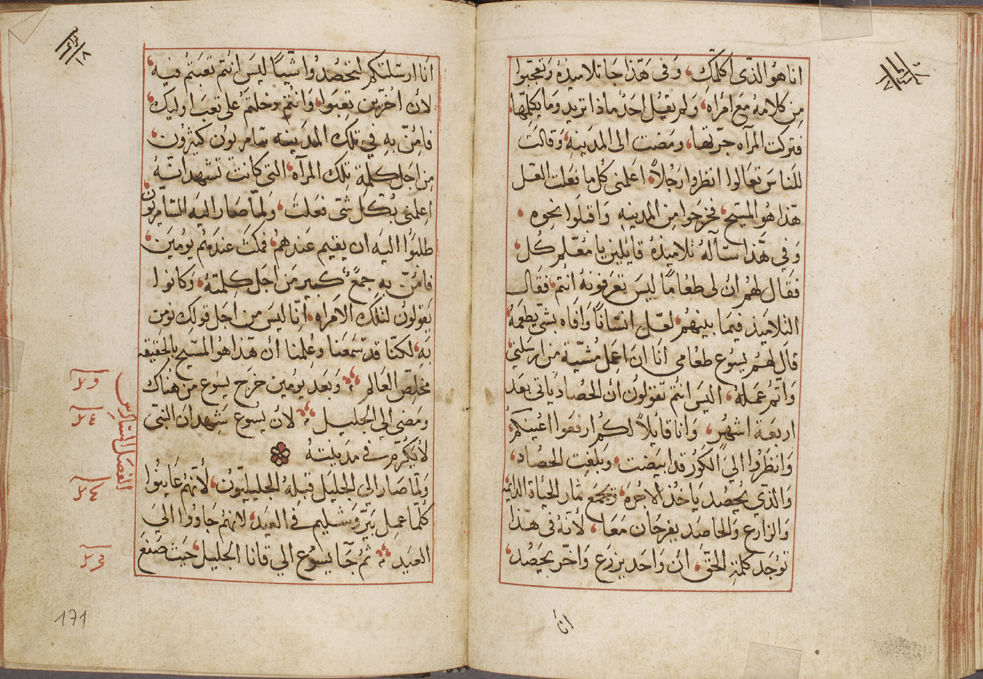 انا هو الذي اكلمك وفي هذا جا تلاميذه وتعجبوا
من كلامه مع امراه ولم يقل احد ماذا تريد وما يكلمها
فتركت المرآه جرتها ومضت الى المدينه وقالت
للناس تعالوا انظروا رجلاً اعلمني كل ما فعلت لعل
هذا هو المسيح فخرجوا من المدينه واقبلوا نحوه
وفي هذا سآله تلاميذه قايلين يا معلم كل
فقال لهم ان لي طعاماً ليس تعرفونه انتم فقال
التلاميذ فيما بينهم لعل انساناً وافاه بشي يطعمه
قال لهم يسوع طعامي انا ان اعمل مشية من ارسلني
واتم عمله اليس انتم تقولون ان الحصاد ياتي بعد
اربعة اشهر وانا قايلاً لكم ارفعوا اعينكم
وانظروا الى الكور قد ابيضت وبلغت الحصاد
والذي يحصد ياخذ الاجره ويجمع ثمار الحياة الدايمه
والزارع والحاصد يفرحان معاً لانه في هذا
توجد كلمة الحق ان واحد يزرع واخر يحصد
انا
انا ارسلتكم لتحصدوا شيا ليس انتم تعبتم فيه
لان اخرين تعبوا وانتم دخلتم على تعب اوليك
فامن به في تلك المدينه سامريون كثيرون
من اجل كلمة تلك المرآه التي كانت تشهد انه
اعلمني بكل شي فعلت ولما صار اليه السامريون
طلبوا اليه ان يقيم عندهم فمكث عندهم يومين
فامن به جمع كثير من اجل كلمته وكانوا
يقولون لتلك الامراه انا ليس من اجل قولك نومن
به لكنا قد سمعنا وعلمنا ان هذا هو المسيح بالحقيقه
مخلص العالم وبعد يومين خرج يسوع من هناك
ومضى الى الجليل لان يسوع شهد ان النبي
لا يكرم في مدينته
ولما صار الى الجليل قبله الجليليون لانهم عاينوا
كلما عمل بيروشليم في العيد لانهم جاووا الى
العيد ثم جا يسوع الى قانا الجليل حيث صنع
الفصل السادس
171